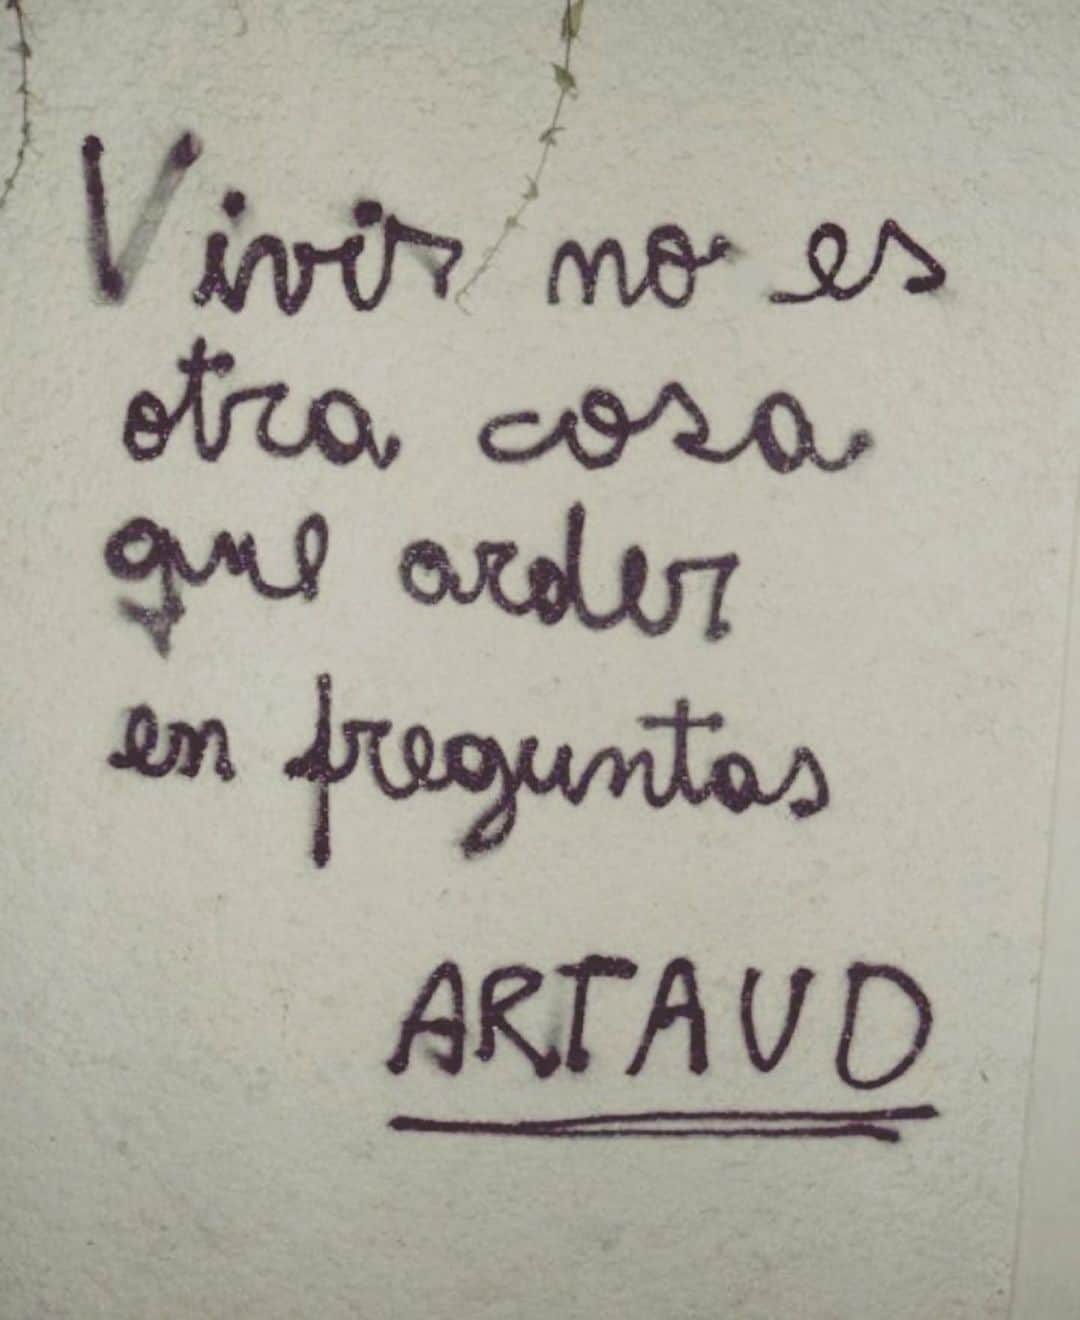 Vivir no es
otra cosa
que arder
en preguntas
ARTAUD